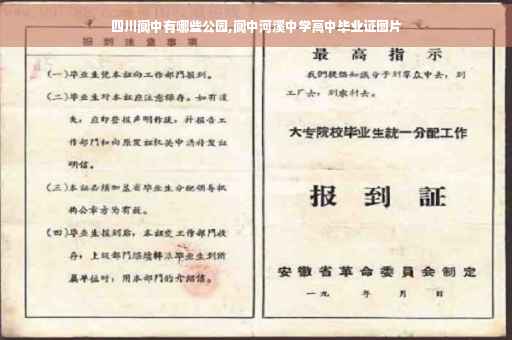 四川阆中有哪些公园,阆中河溪中学高中毕业证图片
报到注意事项
(一)毕业生凭本证向工作部门报到。
(二)毕业生对本证应注意保存。如有遗
失,应即登报声明作废,并报告工
作部门和向原发证机关申请补发证
明信。
(三)本证必须加盖省毕业生分配领导机
构公章方为有效。
(四)毕业生报到后,本证交工作部门收
存;上级部门
毕业生到所
属单位时,用本部门的介绍信。
最高指示
我们提倡知识分子到群众中去,到
工厂去,到农村去。
大专院校毕业生统一分配工作
报到证
安徽省革命委员会制定
一九 年 月 日